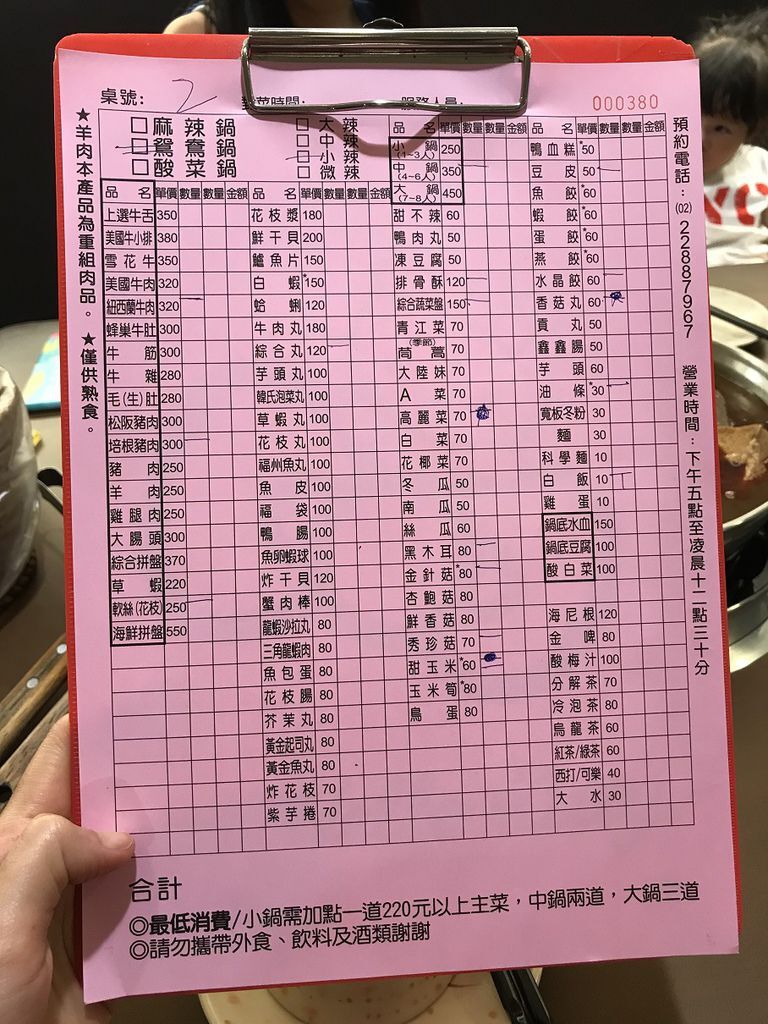 桌號: 2
服務人員:
000380
★羊肉本產品為重組肉品。 ★僅供熟食。
□麻辣鍋
□鴛鴦鍋
□酸菜鍋
□大辣
□中辣
□小辣
□微辣
品名 單價 數量 數量 金額
上選牛舌 350
美國牛小排 380
雪花牛 350
美國牛肉 320
紐西蘭牛肉 320
蜂巢牛肚 300
牛筋 300
牛雜 280
毛(生)肚 280
松阪豬肉 300
培根豬肉 300
豬肉 250
羊肉 250
雞腿肉 250
大腸頭 300
綜合拼盤 370
草蝦 220
軟絲(花枝) 250
海鮮拼盤 550
品名 單價 數量 數量 金額
花枝漿 180
鮮干貝 200
鱸魚片 150
白蝦 *150
蛤蜊 120
牛肉丸 180
綜合丸 120
芋頭丸 100
韓氏泡菜丸 100
草蝦丸 100
花枝丸 100
福州魚丸 100
魚皮 100
福袋 100
鴨腸 100
魚卵蝦球 100
炸干貝 100
蟹肉棒 100
龍蝦沙拉丸 80
三角龍蝦肉 80
魚包蛋 80
花枝腸 80
芥茉丸 80
黃金起司丸 80
黃金魚丸 80
炸花枝 70
紫芋捲 70
品名 單價 數量 數量 金額
小鍋 (1~3人) 250
中鍋 (4~6人) 350
大鍋 (7~8人) 450
甜不辣 60
鴨肉丸 50
凍豆腐 50
排骨酥 120
綜合蔬菜盤 150
青江菜 70
(季節) 茼蒿 70
大陸妹 70
A菜 70
高麗菜 70
白菜 70
花椰菜 70
冬瓜 50
南瓜 50
絲瓜 60
黑木耳 80
金針菇 *80
杏鮑菇 80
鮮香菇 80
秀珍菇 70
甜玉米 *60
玉米筍 *80
鳥蛋 80
品名 單價 數量 數量 金額
鴨血糕 *50
豆皮 50
魚餃 *60
蝦餃 *60
蛋餃 *60
燕餃 *60
水晶餃 60
香菇丸 60
貢丸 50
鑫鑫腸 50
芋頭 60
油條 *30
寬板冬粉 30
麵 30
科學麵 10
白飯 10
雞蛋 10
鍋底水血 150
鍋底豆腐 100
酸白菜 100
海尼根 120
金啤 80
酸梅汁 100
分解茶 70
冷泡茶 80
烏龍茶 60
紅茶/綠茶 60
西打/可樂 40
大水 30
預約電話:(02)22887967 營業時間:下午五點至凌晨十二點三十分
合計
◎最低消費/小鍋需加點一道220元以上主菜,中鍋兩道,大鍋三道
◎請勿攜帶外食、飲料及酒類謝謝